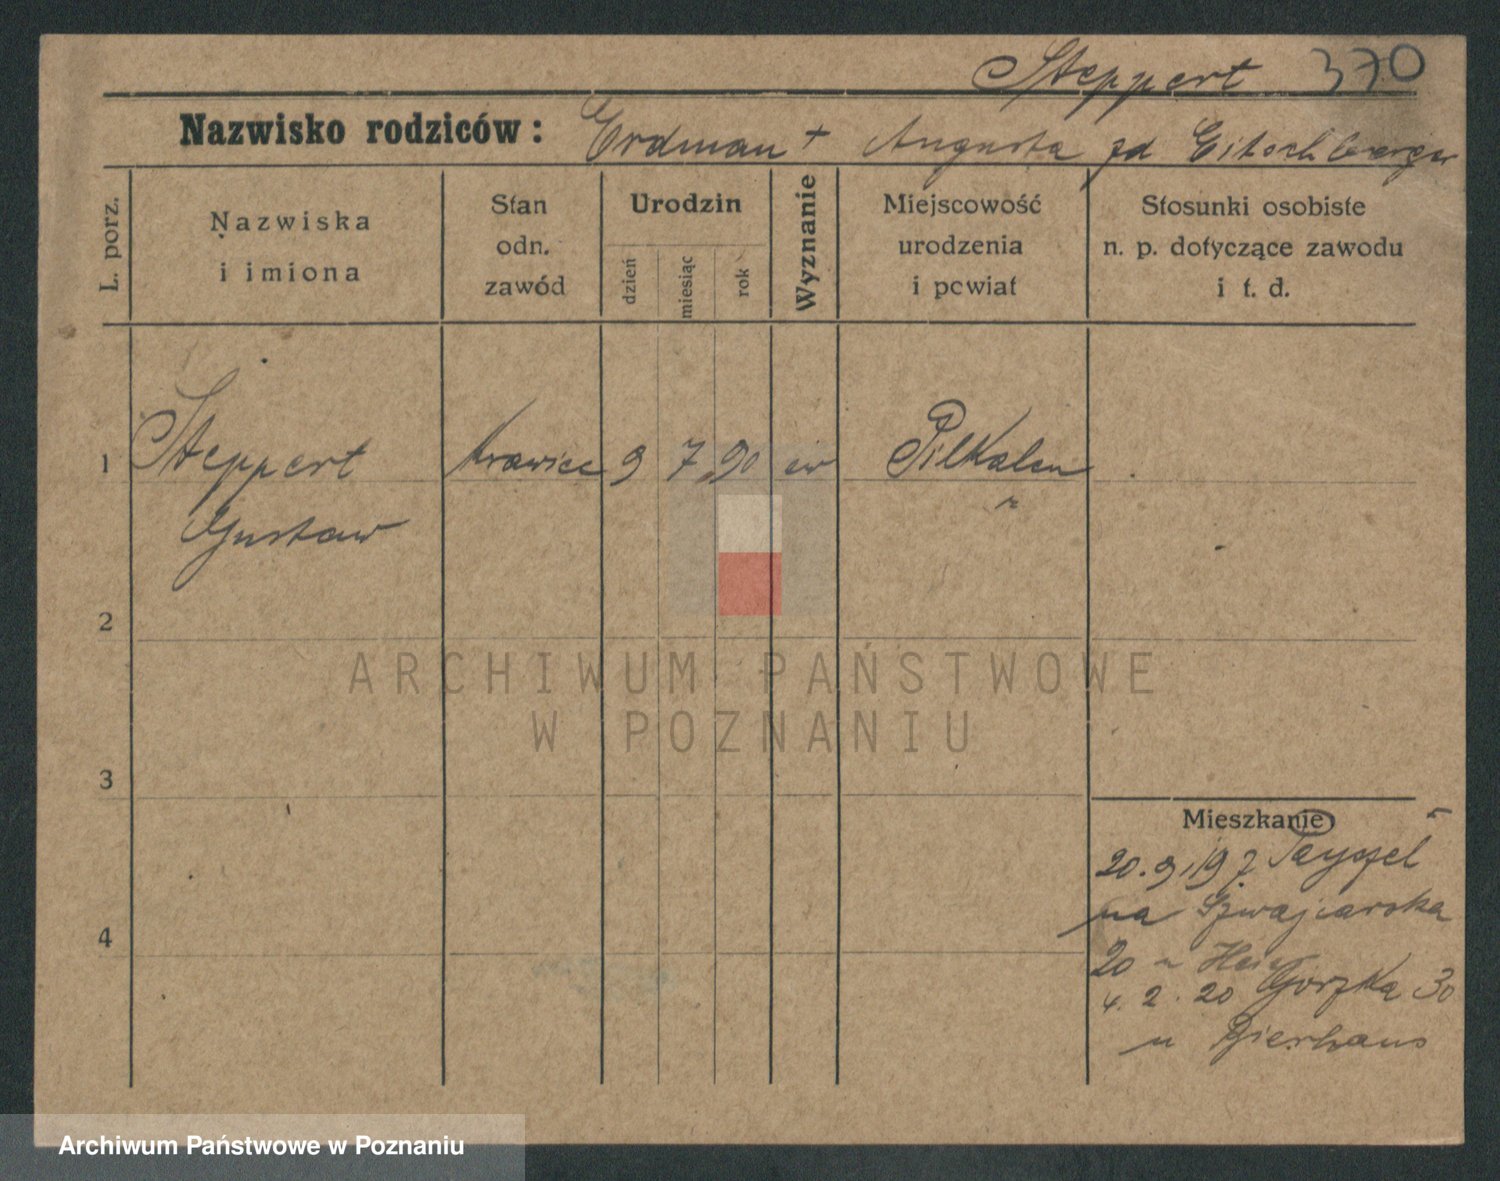 Steppert 370
Nazwisko rodziców: Erdman + Augusta zd
L. porz.
Nazwiska
i imiona
Stan
odn.
zawód
Urodzin
dzień
miesiąc
rok
Wyznanie
Miejscowość
urodzenia
i powiat
Stosunki osobiste
n. p. dotyczące zawodu
i t. d.
1 Steppert Krawiec 9 7 90 ew Pilkalen
"
Gustaw
2
3
4
Mieszkanie
20. 9. 19 z
na Szwajcarska
20 u
4. 2. 20 Gorzka 30
u Bierhaus
ARCHIWUM PAŃSTWOWE
W POZNANIU
Archiwum Państwowe w Poznaniu